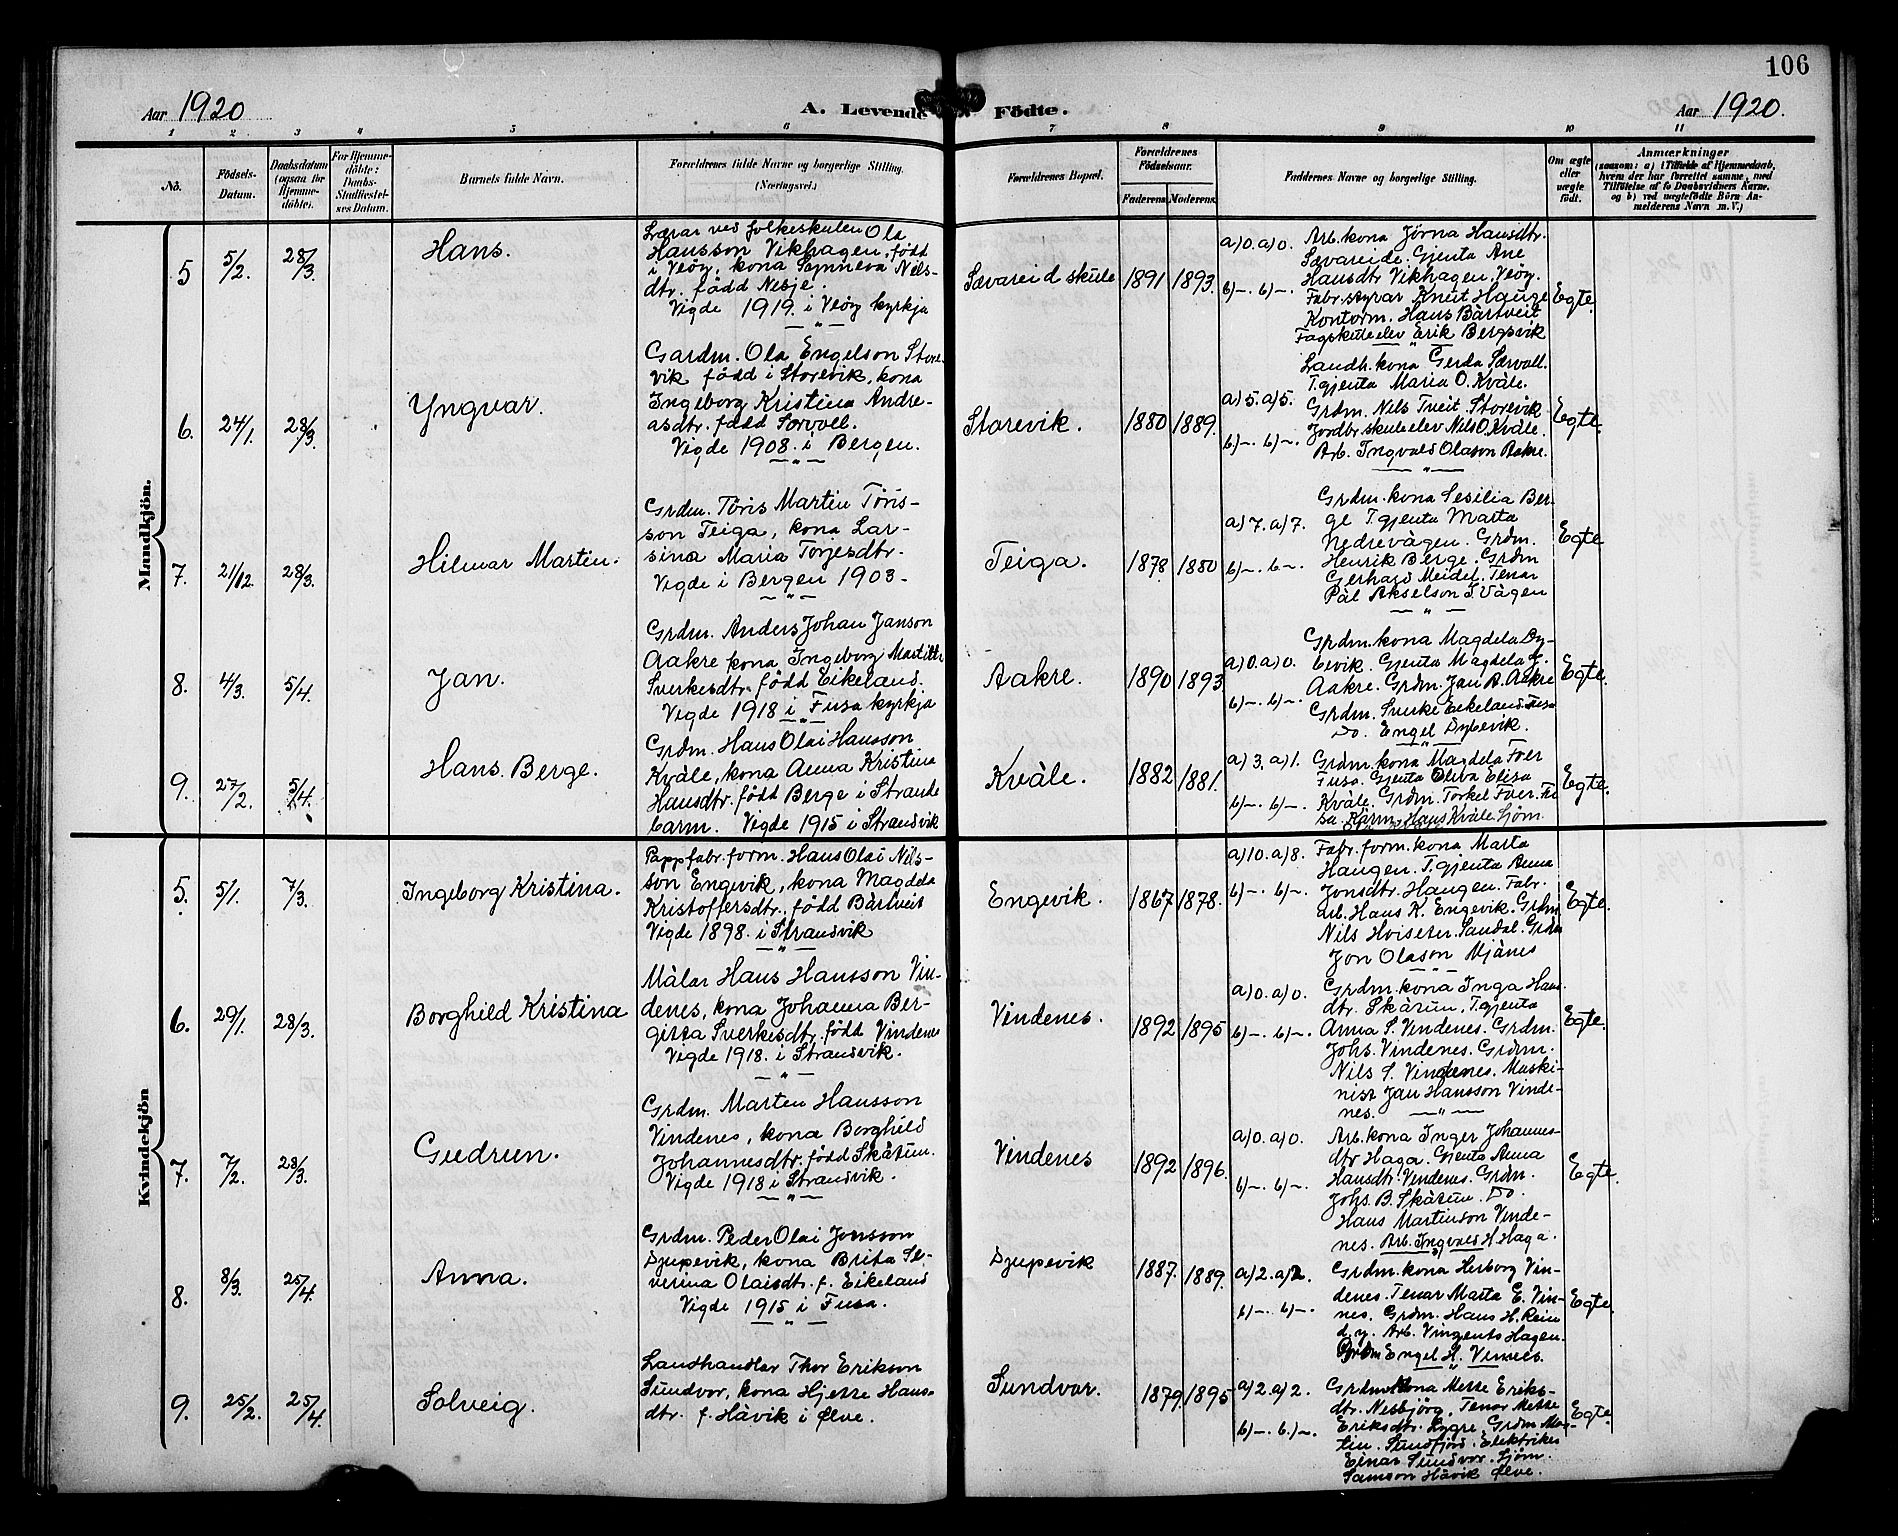 106
Aar 1920
A. Levende Födte.
Aar 1920.
1 2 3 4 5 6 7 8 9 10 11
No.
Födsels-Datum.
Daabsdatum (ogsaa for Hjemmedöbte).
For Hjemmedöbte: Daabs-Stadfæstelses Datum.
Barnets fulde Navn.
Forældrenes fulde Navne og borgerlige Stilling. (Næringsvei.)
Forældrenes Bopæl.
Forældrenes Födselsaar.
Faderens. Moderens.
Faddernes Navne og borgerlige Stilling.
Om ægte eller uægte födt.
Anmærkninger
(saasom: a) i Tilfælde af Hjemmedaab,
hvem der har forrettet samme, med
Tilföielse af to Daabsvidners Navne,
og b) ved uægtefödte Börn An-
melderens Navn m. V.)
Mandkjön.
5 5/2. 28/3. Hans.
Lærar ved folkeskulen Ola
Hansson Vikhagen, född
i Veöy, kona Synneva Nils-
dtr. född Nesje.
Vigde 1919. i Veöy kyrkja
Sævareid skule 1891 1893.
a) 0. a) 0.
b) –. b) –.
Arb. kona Jörna Hansdtr.
Sævareide. Gjenta Ane
Hansdtr Vikhagen, Veöy.
Fabr. styrar Knut Hauge
Kontorm. Hans Bårtveit
Fagskuleelev Erik Bergsvik
Egte.
6. 24/1. 28/3. Yngvar.
Gardm. Ola Engelson Store-
vik född i Storevik, kona
Ingeborg Kristina Andre-
asdtr. född Sörvoll.
Vigde 1908. i Bergen.
Storevik. 1880 1889.
a) 5. a) 5.
b) –. b) –.
Landh. kona Gerda Særvoll.
T. gjenta Maria O. Kvåle.
Grdm. Nils Tveit. Storevik
Jordbr skuleelev Nils O. Kvåle.
Arb. Ingvald Olason Aakre.
Egte.
7. 21/12. 28/3. Hilmar Martin.
Grdm. Töris Martin Töris-
son Teiga, kona Lar-
sina Maria Torjesdtr.
Vigde i Bergen 1903.
Teiga. 1878 1880
a) 7. a) 7.
b) –. b –.
Grdm. kona Sesilia Ber-
ge T. gjenta Marta
Nedrevågen. Grdm.
Henrik Berge. Grdm
Gerhard Meidel. Tenar
Pål Akselson T. Vågen
Egte
8. 4/3. 5/4. Jan.
Grdm. Anders Johan Janson
Aakre kona Ingeborg
Sverkesdtr. född Eikeland.
Vigde 1918 i Fusa kyrkja
Aakre. 1890 1893
a) 0. a) 0.
b) –. b) –.
Grdm. kona Magdela Dy-
bevik. Gjenta Magdela J.
Aakre. Grdm. Jan A. Aakre
Grdm. Sverke Eikeland Fusa
Do. Engel Dybevik.
Egte.
9. 27/2. 5/4. Hans Berge.
Grdm. Hans Olai Hansson
Kvåle, kona Anna Kristina
Hansdtr. född Berge i Strande
barm. Vigde 1915 i Strandvik
Kvåle. 1882 1881.
a) 3. a) 1.
b) –. b) –.
Grdm. kona Magdela Foer
Fusa. Gjenta Oliva Elisa
Kvåle. Grdm. Torkel Foer. Fu
sa. Kårm. Hans Kvåle. Sjöm.
Egte.
Kvindekjön
5. 5/1. 7/3. Ingeborg Kristina.
Pappfabr. form. Hans Olai Nils-
son Engevik, kona Magdela
Kristoffersdtr. född Bårtveit
Vigde 1898. i Strandvik
Engevik. 1867 1878.
a) 10. a) 8.
b) –. b) –.
Fabr. form. kona Marta
Haugen. T. gjenta Anna
Jonsdtr. Haugen. Fabr.
arb. Hans K. Engevik. Grdm
Nils Hviseter. Sandal. Grdm
Jon Olason Mjånes
Egte.
6. 29/1. 28/3. Borghild Kristina
Målar Hans Hansson Vin-
denes, kona Johanna Ber-
gitta Sverkesdtr. född Vindenes
Vigde 1918. i Strandvik.
Vindenes. 1892 1895
a) 0. a) 0.
b) –. b) –.
Grdm. kona Inga Hans
dtr. Skåtun. T. gjenta
Anna S. Vindenes. Grdm.
Johs. Vindenes. Grdm.
Nils S. Vindenes. Maski-
nist Jan Hansson Vinde-
nes.
Egte.
7. 7/2. 28/3. Gudrun.
Grdm. Marten Hansson
Vindenes, kona Borghild
Johannesdtr. född Skåtun.
Vigde 1918 i Strandvik.
Vindenes 1892 1896.
a) 0. a) 0.
b) –. b) –.
Arb. kona Inger Johannes-
dtr Haga. Gjenta Anna
Hansdtr. Vindenes. Grdm.
Johs. B. Skåtun. Do.
Hans Martinson Vinde-
nes. Arb. Ingvald H Haga.
Egte.
8. 8/3. 25/4. Anna.
Grdm. Peder Olai Jonsson
Djupevik, kona Brita Se-
verina Olaisdtr. f. Eikeland
Vigde 1915 i Fusa.
Djupevik 1887. 1889.
a) 2. a) 2.
b) –. b) –.
Grdm. kona Herborg Vin-
denes. Tenar Marta E. Vin-
nes. Grdm. Hans H. Rein
d. y. Arb. Vingents Hagen.
Grdm Engel H. Vinnes.
Egte.
9. 25/2. 25/4. Solveig.
Landhandlar Thor Erikson
Sundvor, kona Hjette Hans-
dtr. f. Håvik i Ölve.
Sundvor. 1879. 1895
a) 2. a) 2.
b) –. b) –.
Grdm. kona Mette Eriks-
dtr. Nesbjörg, Tenar Mette
Eriksdtr. Lygre, Grdm Mar-
tin. Sundfjord. Elektriker
Einar Sundvor. Sjöm.
Samson Håvik Ölve.
Egte.